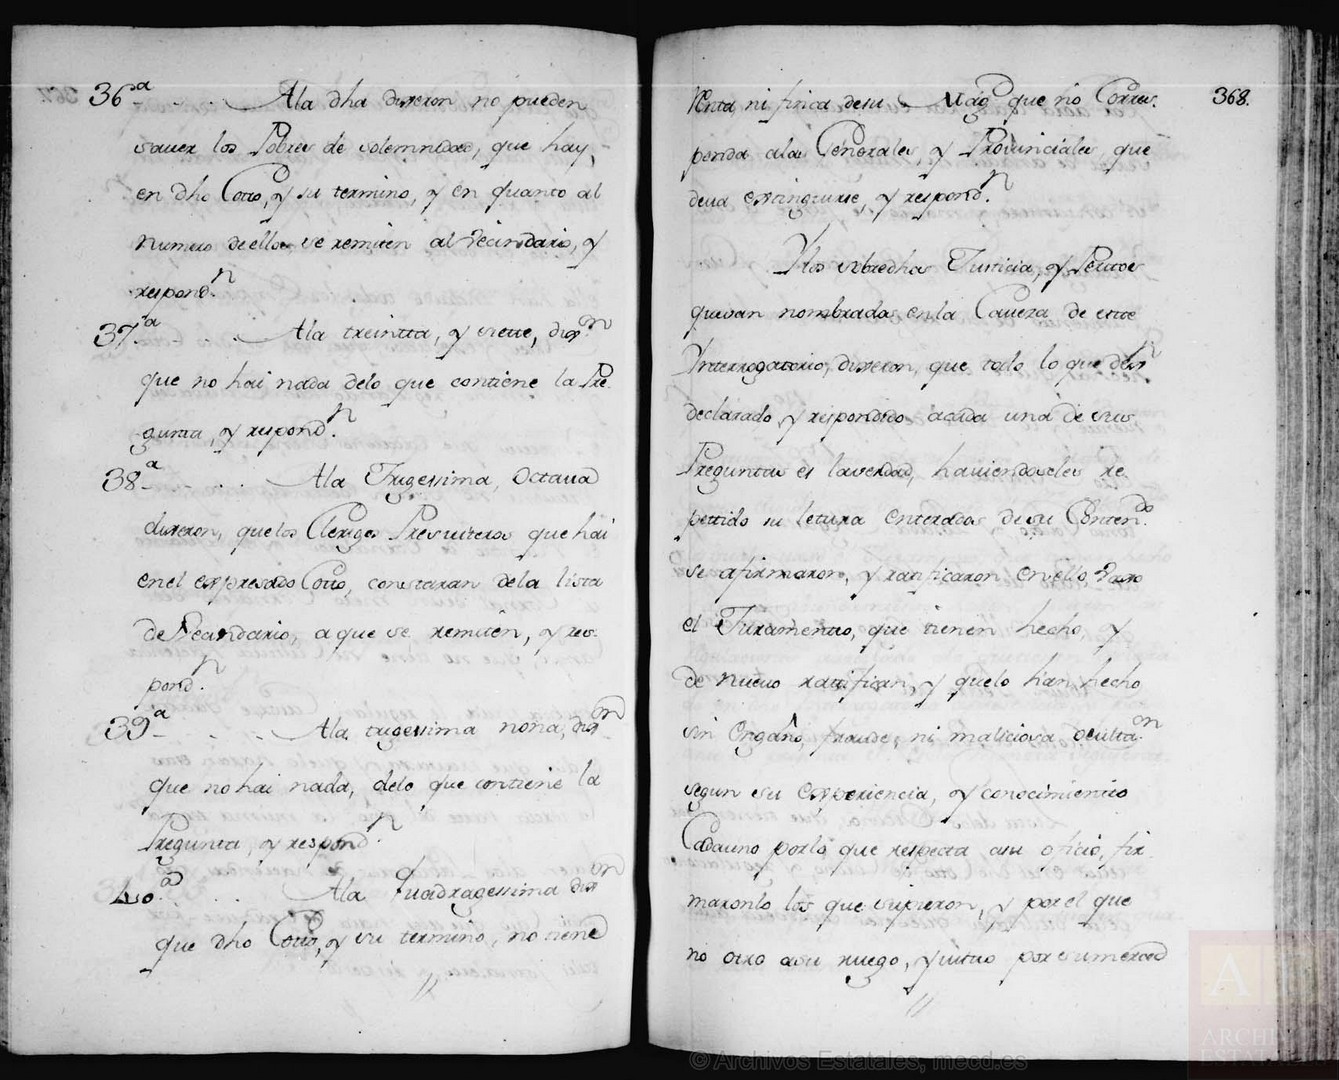 36ª - - - Ala dha dixeron no pueden
saver los Pobres de solemnidad, que hay,
en dho Cotto, y su termino, y en quanto al
numero de ellos, se remiten al Vecindario, y
respond.n
37ª - - - Ala treintta, y siette, dix.on
que no hai nada delo que contiene la Pre-
gunta, y respond.n
38ª - - - Ala Trigessima, Octtaua
dixeron, que los Clerigos Presuiteros que hai
en el expresado Cotto, constaran dela lista
de Vecindario, aque se remiten, y res-
pond.n
39ª - - - Ala trigessima nona, dix.on
que no hai nada, delo que contiene la
Pregunta, y respond.n
40ª - - - Ala quadragessima dix.on
que dho Cotto, y su termino, no tiene
368.
Renta, ni finca de su Mag.d que no Corres-
ponda alas Generales, y Provinciales, que
deua extinguirse, y respond.n
Y los sobredhos Justicia, y Peritos
que van nombrados en la Caveza de este
Ynterrogatorio, dixeron, que todo lo que
declarado, y respondido acada una de sus
Preguntas es la verdad, haviendoseles re-
pettido su letura enterados de su Conten.do
se afirmaron, y ratificaron en ello, vaxo
el Juramento, que tienen hecho, y
de nueuo rattifican, y quelo han hecho
sin Engaño, fraude, ni maliciosa Oculta.on
segun su experiencia, y conocimiento
Cada uno porlo que respecta asu oficio, fir-
maronlo los que supieron, y por el que
no otro asu ruego, y sumerced
© Archivos Estatales, mecd.es
ARCHIVOS
ESTATALES